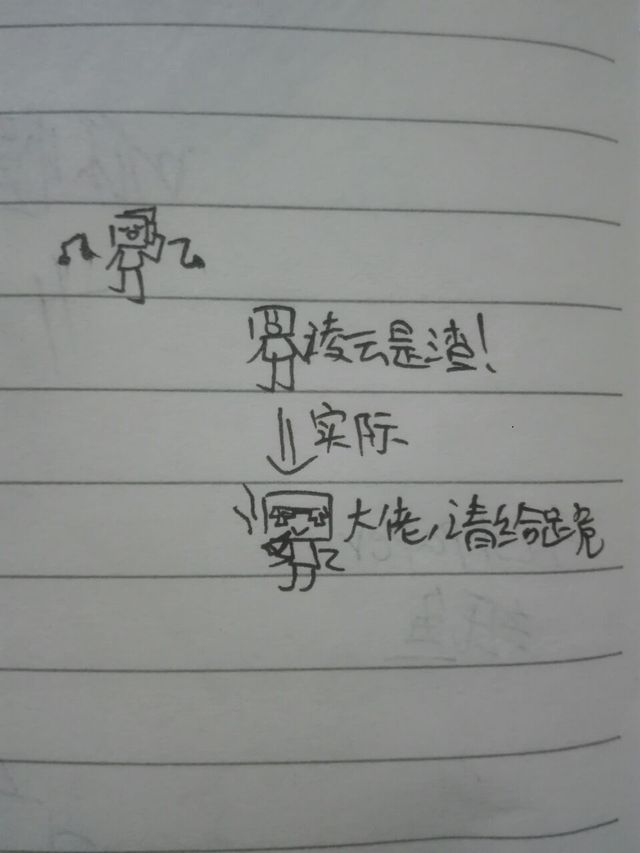 凌云是渣!
实际
大佬,请给跪